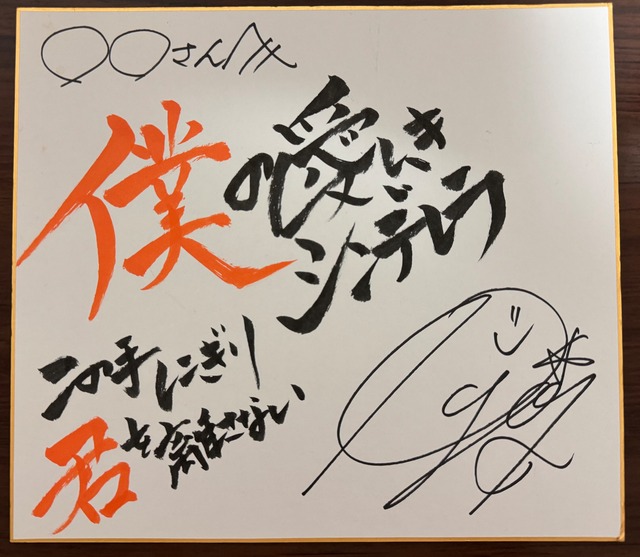 〇〇さんへ
僕の愛しき
シンデレラ
この手にぎり
君を離さない